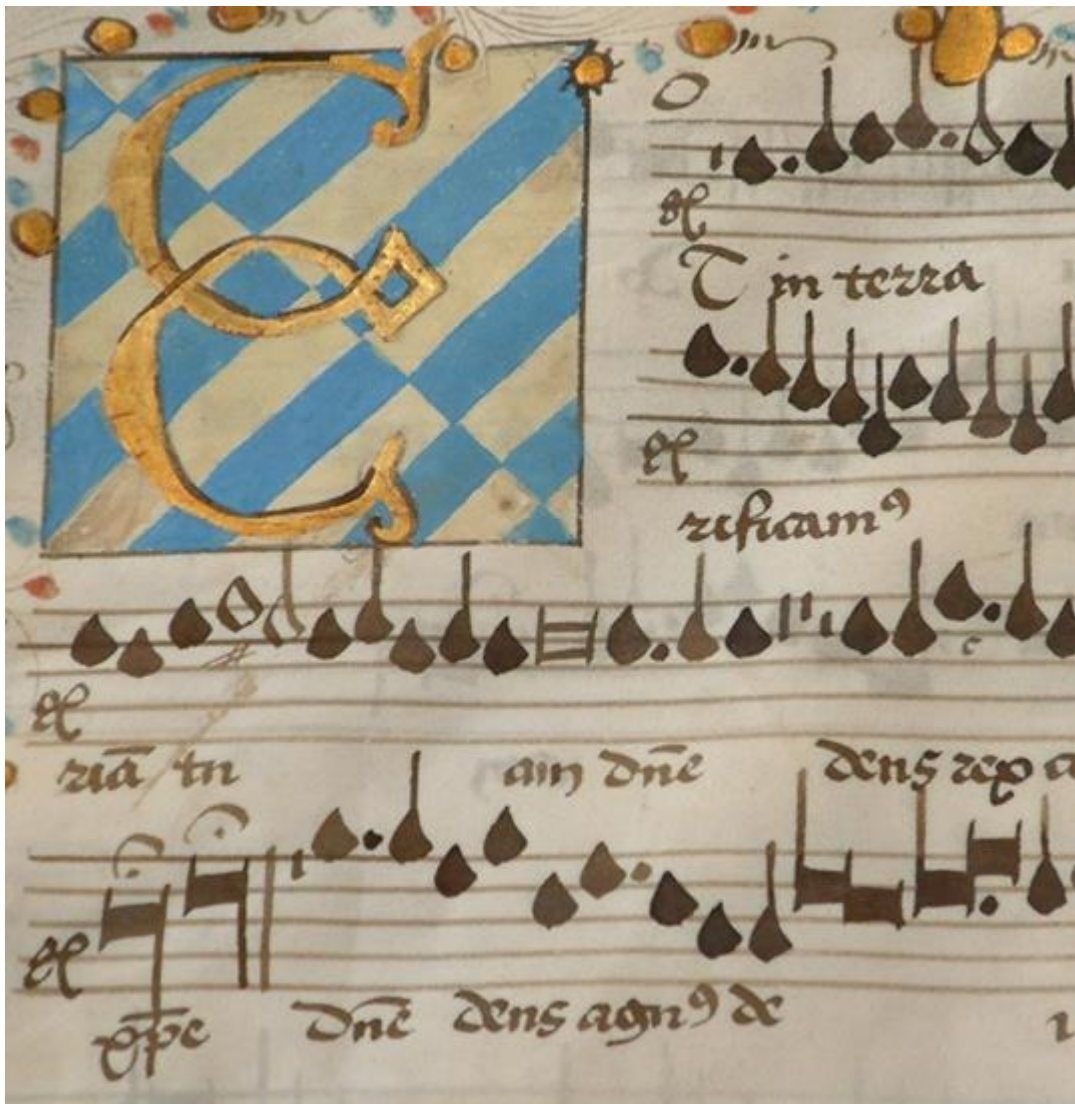 E T in terra
rificamꝰ
riā tu am dn̄e deus rex
xp̄e dn̄e deus agnꝰ de